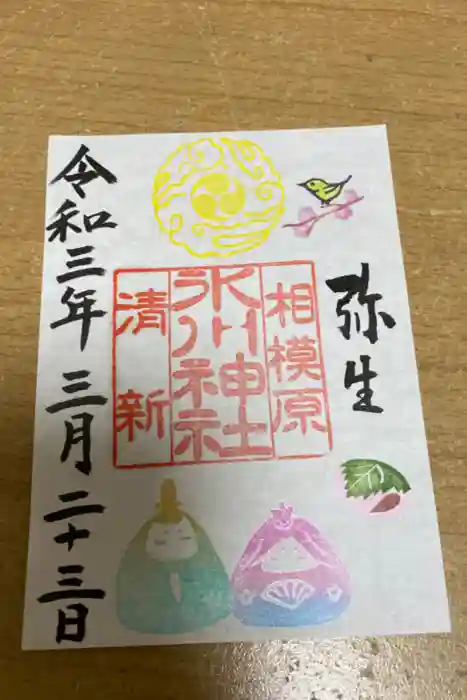 弥生
相模原
氷川神社
清新
令和三年 三月二十三日